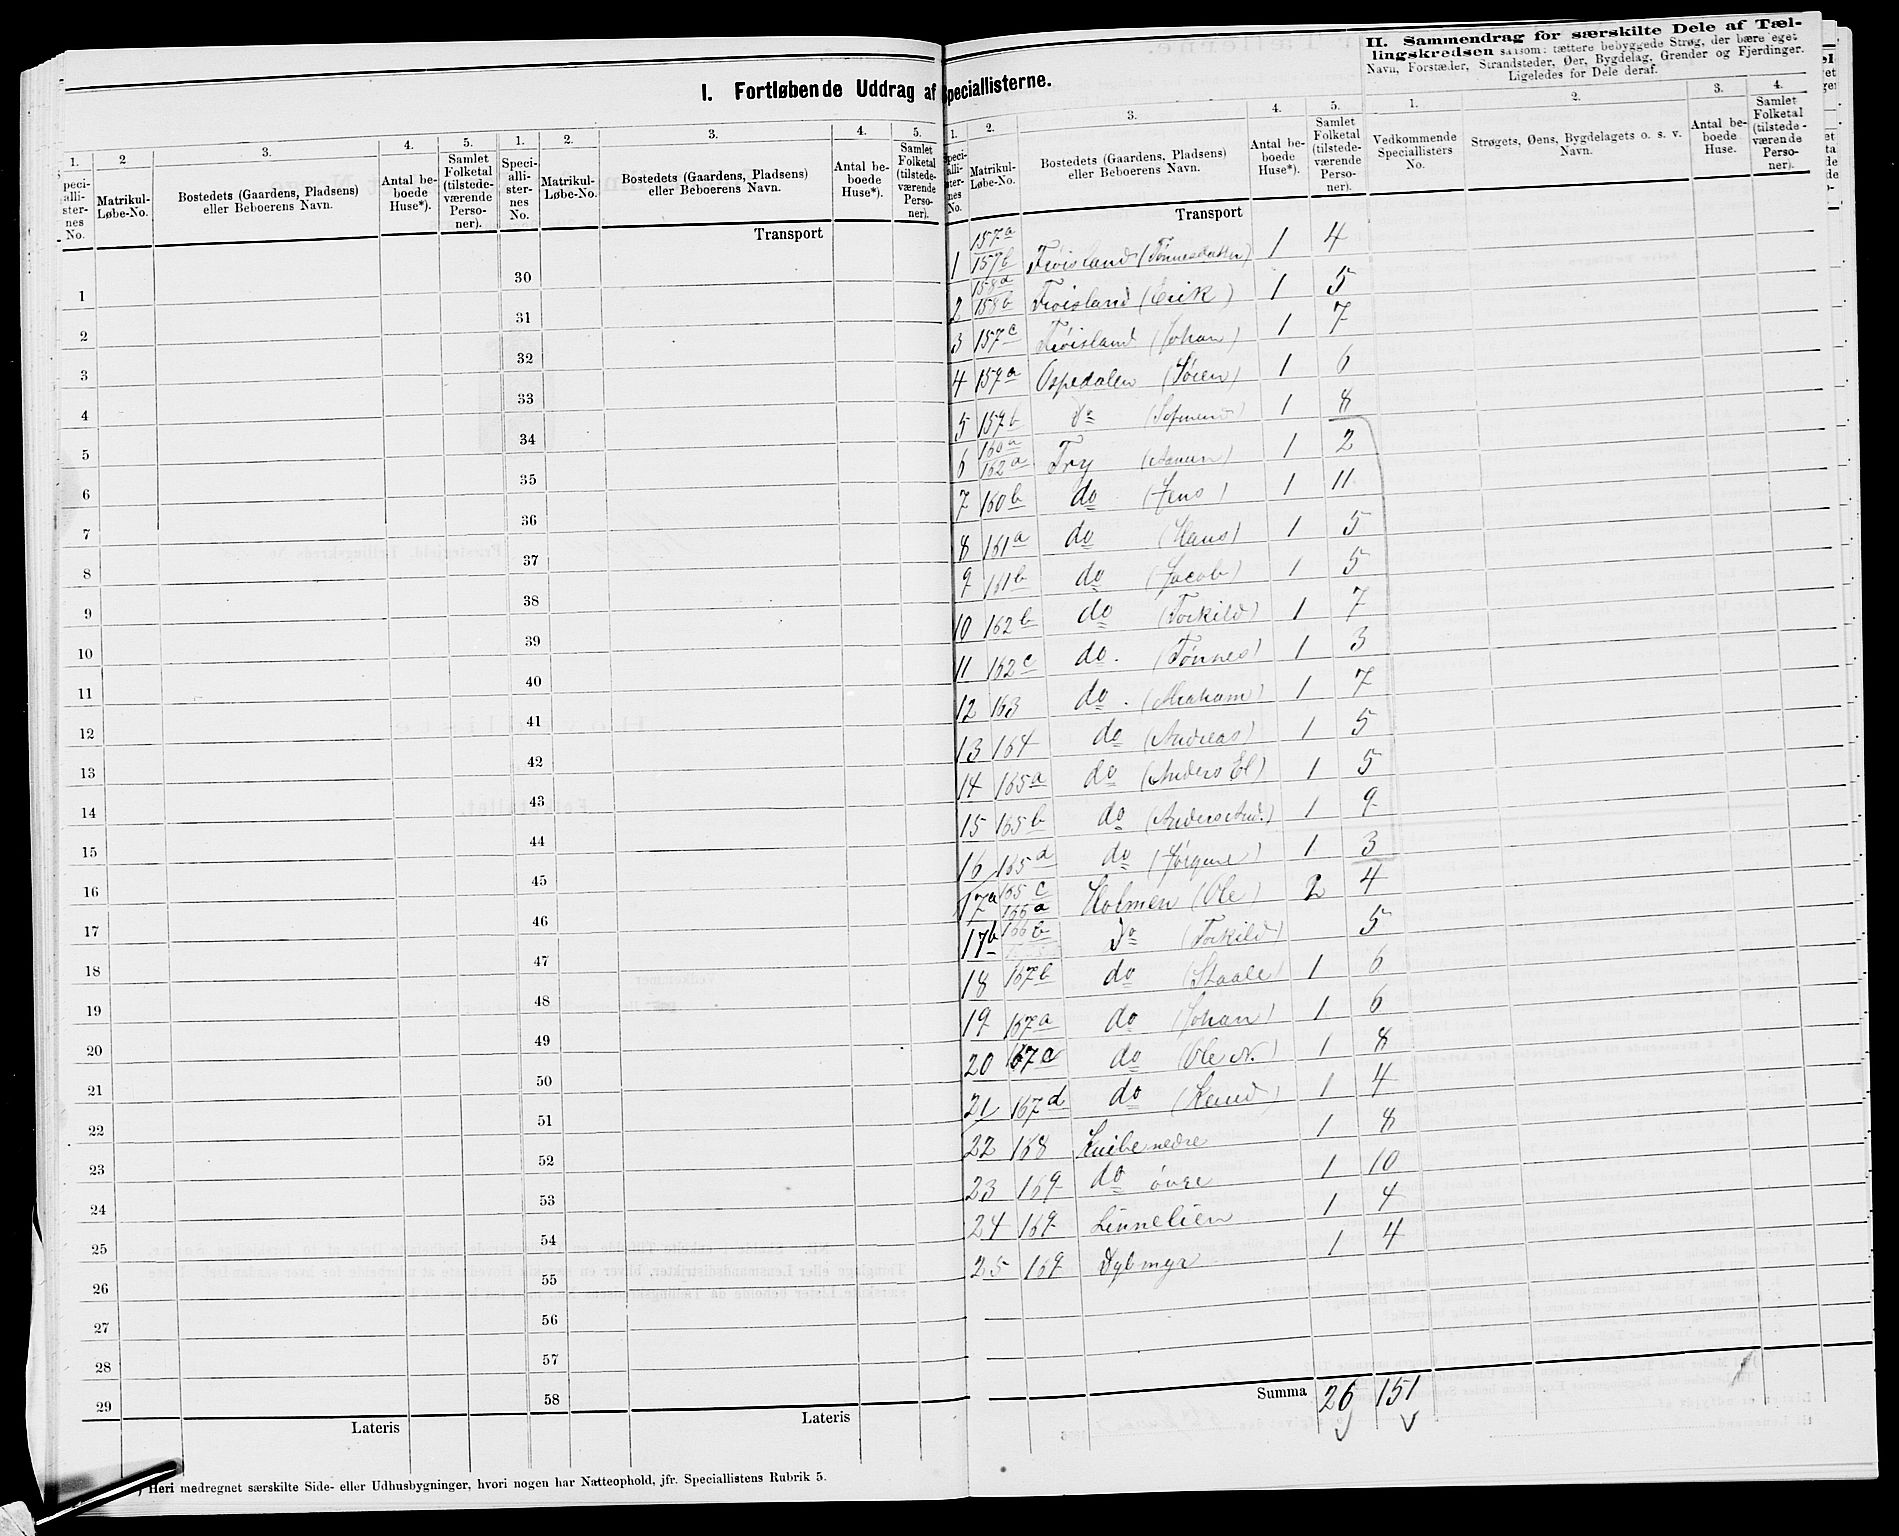 I. Fortløbende Uddrag af Speciallisterne.
II. Sammendrag for særskilte Dele af Tællingskredsen saasom: tættere bebyggede Strøg, der bære eget
Navn, Forstæder, Strandsteder, Øer, Bygdelag, Grender og Fjerdinger.
Ligeledes for Dele deraf.
1. 2 3. 4. 5. 1. 2. 3. 4. 5.
Speciallisternes No. Matrikul-Løbe-No. Bostedets (Gaardens, Pladsens) eller Beboerens Navn. Antal beboede Huse*). Samlet Folketal (tilstedeværende Personer). Speciallisternes No. Matrikul-Løbe-No. Bostedets (Gaardens, Pladsens) eller Beboerens Navn. Antal beboede Huse*). Samlet Folketal (tilstedeværende Personer).
Transport
1 30
2 31
3 32
4 33
5 34
6 35
7 36
8 37
9 38
10 39
11 40
12 41
13 42
14 43
15 44
16 45
17 46
18 47
19 48
20 49
21 50
22 51
23 52
24 53
25 54
26 55
27 56
28 57
29 58
Lateris Lateris
*) Heri medregnet særskilte Side- eller Udhusbygninger, hvori nogen har Natteophold, jfr. Speciallistens Rubrik 5.
1. 2. 3. 4. 5. 1. 2. 3. 4.
Speciallisternes No. Matrikul-Løbe-No. Bostedets (Gaardens, Pladsens) eller Beboerens Navn. Antal beboede Huse*). Samlet Folketal (tilstedeværende Personer). Vedkommende Speciallisters No. Strøgets, Øens, Bygdelagets o. s. v. Navn. Antal beboede Huse. Samlet Folketal (tilstedeværende Personer).
Transport
1 157a 157b Frøisland 1 4
2 158a 158b Frøisland (Erik) 1 5
3 157c Frøisland (Johan) 1 7
4 159a Ospedalen (Søren) 1 6
5 159b do 1 8
6 160a 162a Try 1 2
7 160b do (Jens) 1 11
8 161a do (Hans) 1 5
9 161b do (Jacob) 1 5
10 162b do (Torkild) 1 7
11 162c do. (Tønnes) 1 3
12 163 do. (Abraham) 1 7
13 164 do (Andreas) 1 5
14 165a do (Anders El) 1 5
15 165b do (Anders And.) 1 9
16 165d do (Jørgine) 1 3
17a 165c 166a Holmen (Ole) 2 4
17b 166b do (Torkild) 5
18 167b do (Staale) 1 6
19 167a do (Johan) 1 6
20 167c do (Ole N.) 1 8
21 167d do (Knud) 1 4
22 168 Knibe nedre 1 8
23 169 do øvre 1 10
24 169 Linnelien 1 4
25 169 Dybmyr 1 4
Summa 26 151